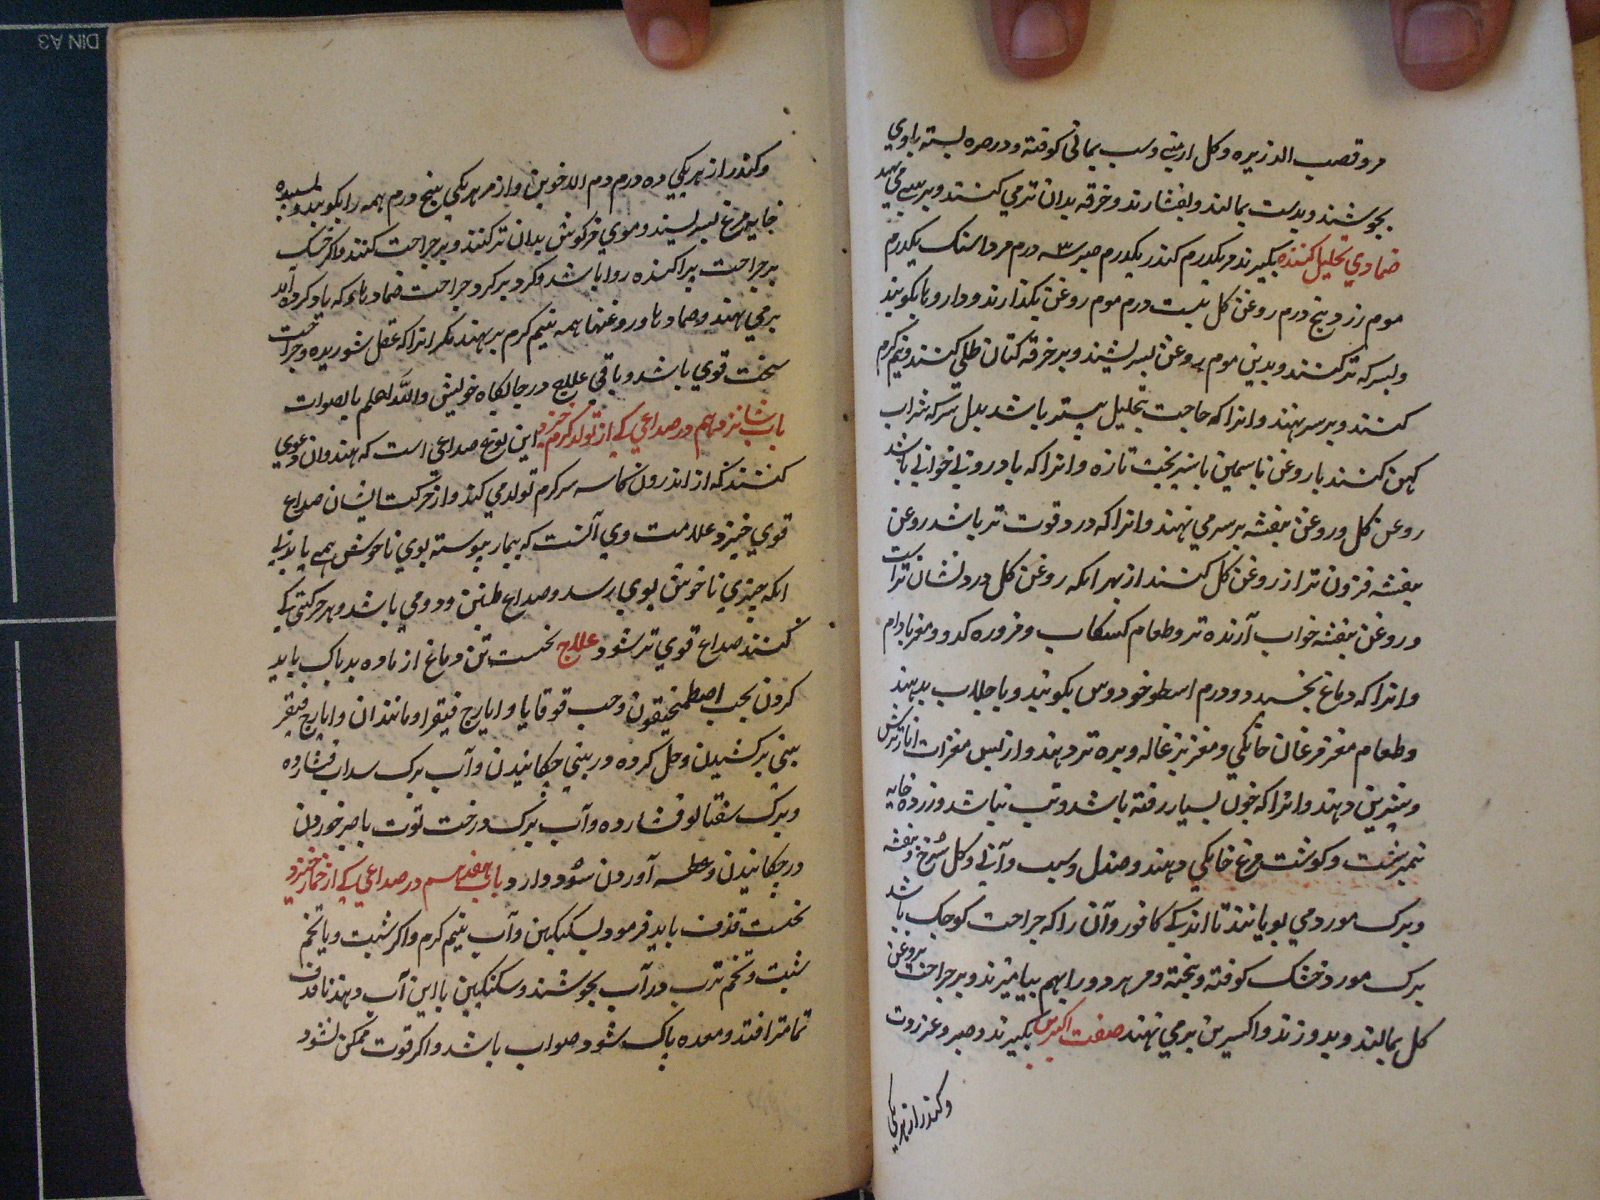 مر و قصب الذریره و کل ارمنی و سب یمانی کوفته و در صره بسته با وی
بجوشند و بدست بمالند و بفشارند و خرقه بدان تر می کنند و بر سر می نهند
ضمادی تحلیل کننده بکیرند مر یکدرم کندر یکدرم صبر ۳ درم مرداسنک یکدرم
موم زرد پنج درم روغن کل بیست درم موم روغن بکدارند و داروها بکوبند
و بسرکه تر کنند و بدین موم روغن بسرشند و بر خرقه کتان طلی کنند و نیم کرم
کنند و بر سر نهند و انرا که حاجت تحلیل بیشتر باشد بدل سرکه شراب
کهن کنند با روغن یاسمین یا شیربخت تازه و انرا که با درد بی خوابی باشد
روغن کل و روغن بنفشه بر سر می نهند و انرا که درد قوت تر باشد روغن
بنفشه فزون تر از روغن کل کنند از بهر انکه روغن کل درد نشان تر است
و روغن بنفشه خواب آرنده تر و طعام کشکاب و مزوره کدو و مغز بادام
و انرا که دماغ بجنبد دو درم اسطوخودوس بکوبند و با جلاب بدهند
و طعام مغز مرغان خانکی و مغز بزغاله و بره تر دهند و از پس مغزات انار ترش
و شیرین دهند و انرا که خون بسیار رفته باشد و تب نباشد زرده خایه
نیمبرشت و کوشت مرغ خانکی دهند و صندل و سیب و آبی و کل سرخ و بنفشه
و برک مورد می بویانند تا اندکی کافور و آن را که جراحت کوچک باشد
برک مورد خشک کوفته و بیخته و مر هر دو را بهم بیامیزند و بر جراحت روغن
کل بمالند و بدوزند و اکسیرین برمی نهند صفت اکسیرین بکیرند صبر و عنزروت
و کندر از هر یکی
و کندر از هر یکی ده درم دم الاخوین و از مر هر یکی پنج درم همه را بکوبند و بسپیده
خایه مرغ بسریشند و موی خرکوش بدان تر کنند و بر جراحت کنند و اکر خشک
بر جراحت پراکنده روا باشد و کرد بر کرد جراحت ضمادها که یاد کرده آمد
برمی نهند و ضمادها و روغنها همه نیم کرم بر نهند مکر انرا که عقل شوریده و جراحت
سخت قوی باشد و باقی علاج در جالکاه خویش و الله اعلم بالصواب
باب شانزدهم در صداعی که از تولد کرم خیزد این نوع صداعی است که هندوان دعوی
کنند که از اندرون کاسه سر کرم تولد می کند و از حرکت ایشان صداع
قوی خیزد و علامت وی آنست که بیمار پیوسته بوی ناخوش همی یابد بی
انکه چیزی ناخوش بوی برسد و صداع طنین و دومی باشد و هر حرکتی که
کنند صداع قوی تر شود علاج نخست تن و دماغ از ماده بد پاک باید
کردن بحب اصطمخیقون و حب قوقایا و ایارج فیقرا و مانند ان و ایارج فیقرا
ببینی برکشیدن و حل کرده در بینی چکانیدن و آب برک سداب فشارده
و برک شفتالو فشارده و آب برک درخت توت با صبر خوردن
در چکانیدن و عطسه آوردن سود دارد باب هفدهم در صداعی که از خمار خیزد
نخست قذف باید فرمود بسکنکبین و آب نیم کرم و اکر شبت و یا تخم
شبت و تخم ترب در آب بجوشند و سکنکبین با این آب دهند تا قذف
تمامتر افتد و معده پاک شود صواب باشد و اکر قوت ممکن نشود
DIN A3